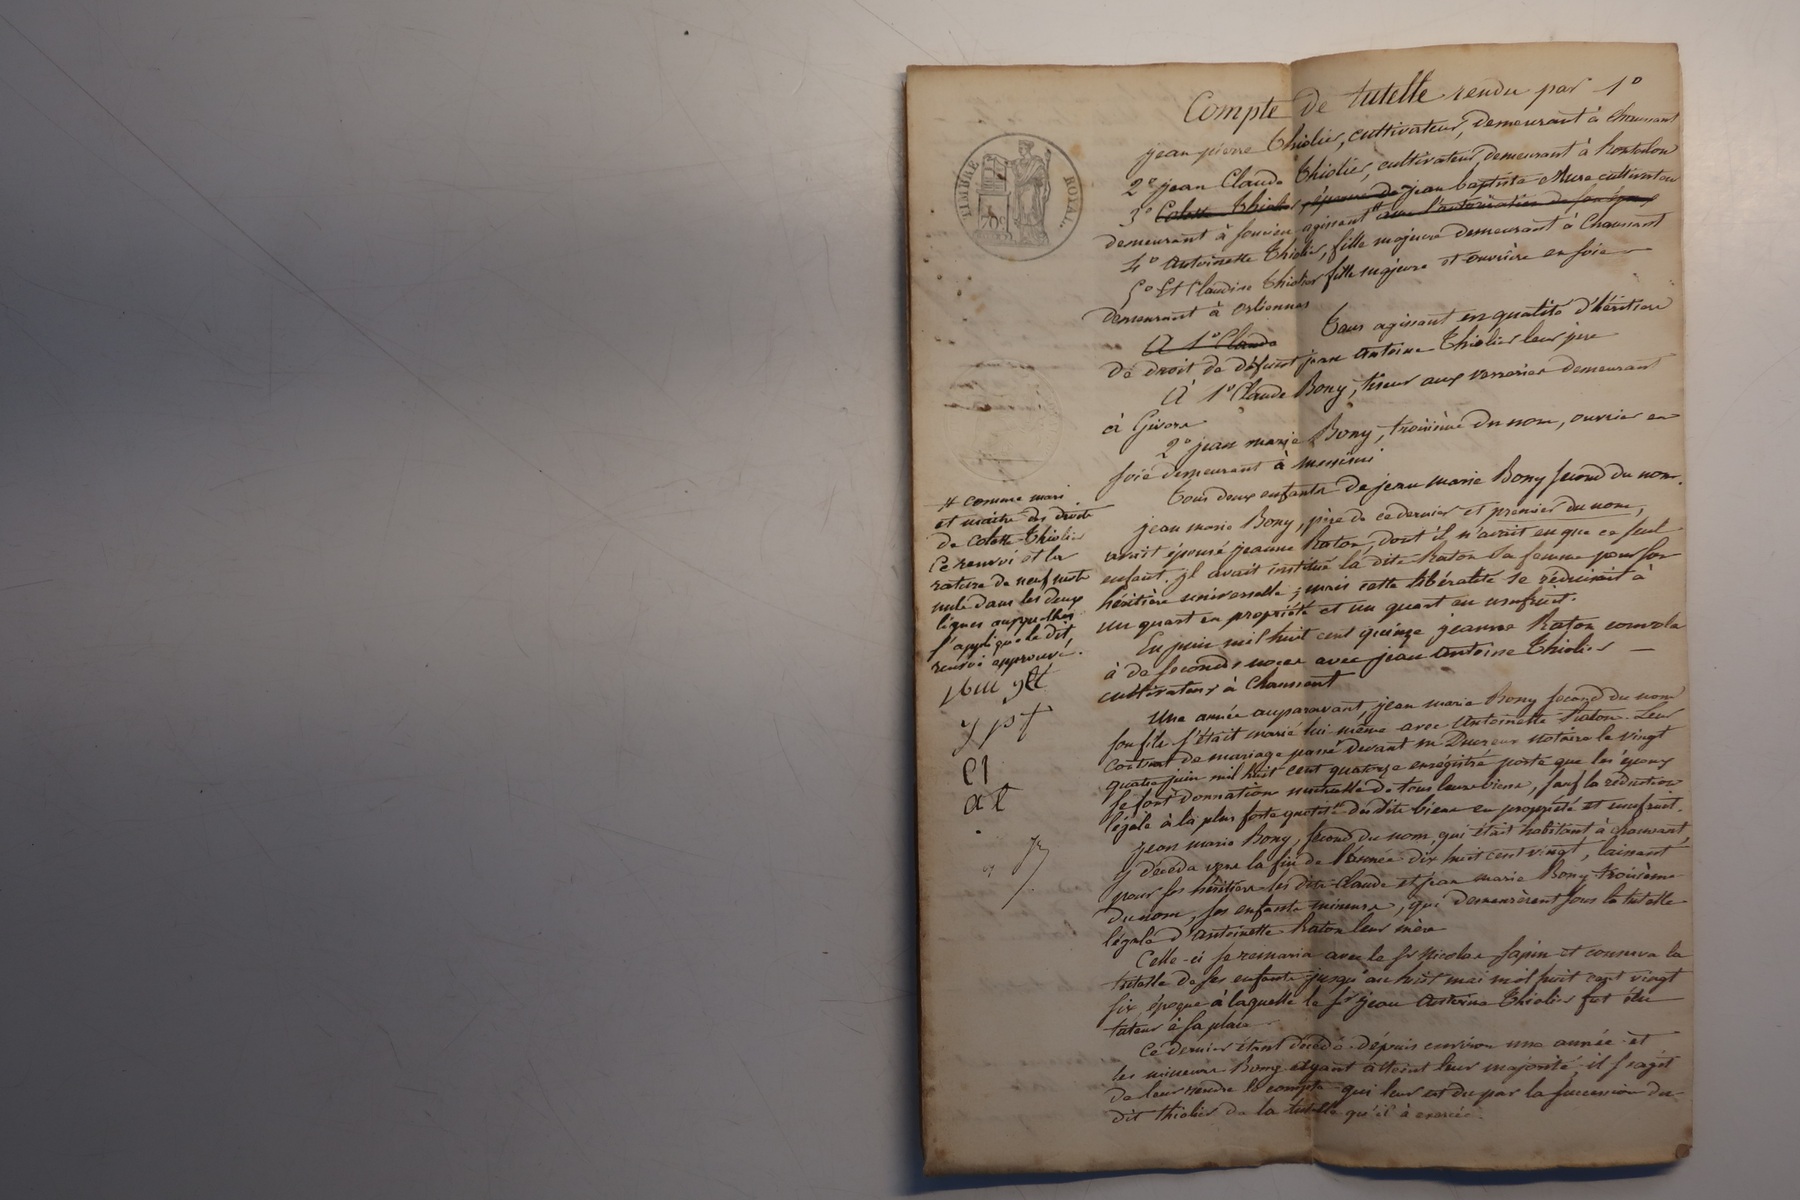 Compte de tutelle rendu par 1°
jean pierre Thiolier, cultivateur, demeurant à Chaussant
2° jean Claude Thiolier, cultivateur, demeurant à Rontalon
3° Colette Thiolier, épouse de jean baptiste Mure cultivateur
demeurant à Soucieu agissant # avec l'autorisation de son époux
4° Antoinette Thiolier, fille majeure demeurant à Chaussant
5° Et Claudine Thiolier fille majeure et ouvrière en soie
demeurant à Orliennas
Tous agissant en qualité d'héritiers
A 1° Claude
de droit de défunt jean Antoine Thiolier leur père
A 1° Claude Bony, tiseur aux verreries demeurant
à Givors
2° jean marie Bony, troisième du nom, ouvrier en
soie demeurant à
Tous deux enfants de jean marie Bony second du nom.
jean marie Bony, père de ce dernier et premier du nom,
avait épousé jeanne Raton, dont il n'avait eu que ce seul
enfant. jl avait institué la dite Raton sa femme pour son
héritière universelle; mais cette libéralité se réduisait à
un quart en propriété et un quart en usufruit.
En juin mil huit cent quinze jeanne Raton convola
à de secondes noces avec jean Antoine Thiolier
cultivateur à Chaussant
Une année auparavant, jean marie Bony second du nom
son fils s'était marié lui même avec Antoinette Raton. Leur
contrat de mariage passé devant me Ducreux notaire le vingt
quatre juin mil huit cent quatorze enregistré porte que les époux
se font donnation mutuelle de tous leurs biens, sauf la réduction
légale à la plus forte quotité des dits biens en propriété et usufruit.
jean marie Bony, second du nom, qui était habitant à Chaussant,
y décéda vers la fin de l'année dix huit cent vingt, laissant
pour ses héritiers les dits Claude et jean marie Bony troisième
du nom, ses enfants mineurs, qui demeurèrent sous la tutelle
légale d'Antoinette Raton leur mère
Celle-ci se remaria avec le Sr Nicolas Sapin et conserva la
tutelle de ses enfants jusqu'au huit mai mil huit cent vingt
six, époque à laquelle le Sr jean Antoine Thiolier fut élu
tuteur à sa place
Ce dernier étant décédé depuis environ une année et
les mineurs Bony ayant atteint leur majorité, il s'agit
de leur rendre le compte qui leur est du par la succession du
dit Thiolier de la tutelle qu'il à exercée.
TIMBRE ROYAL
# comme mari
et maître des droits
de Colette Thiolier
Ce renvoi et la
rature de neuf mots
nuls dans les deux
lignes auxquelles
s'applique le dit
renvoi approuvé.
Ct
at